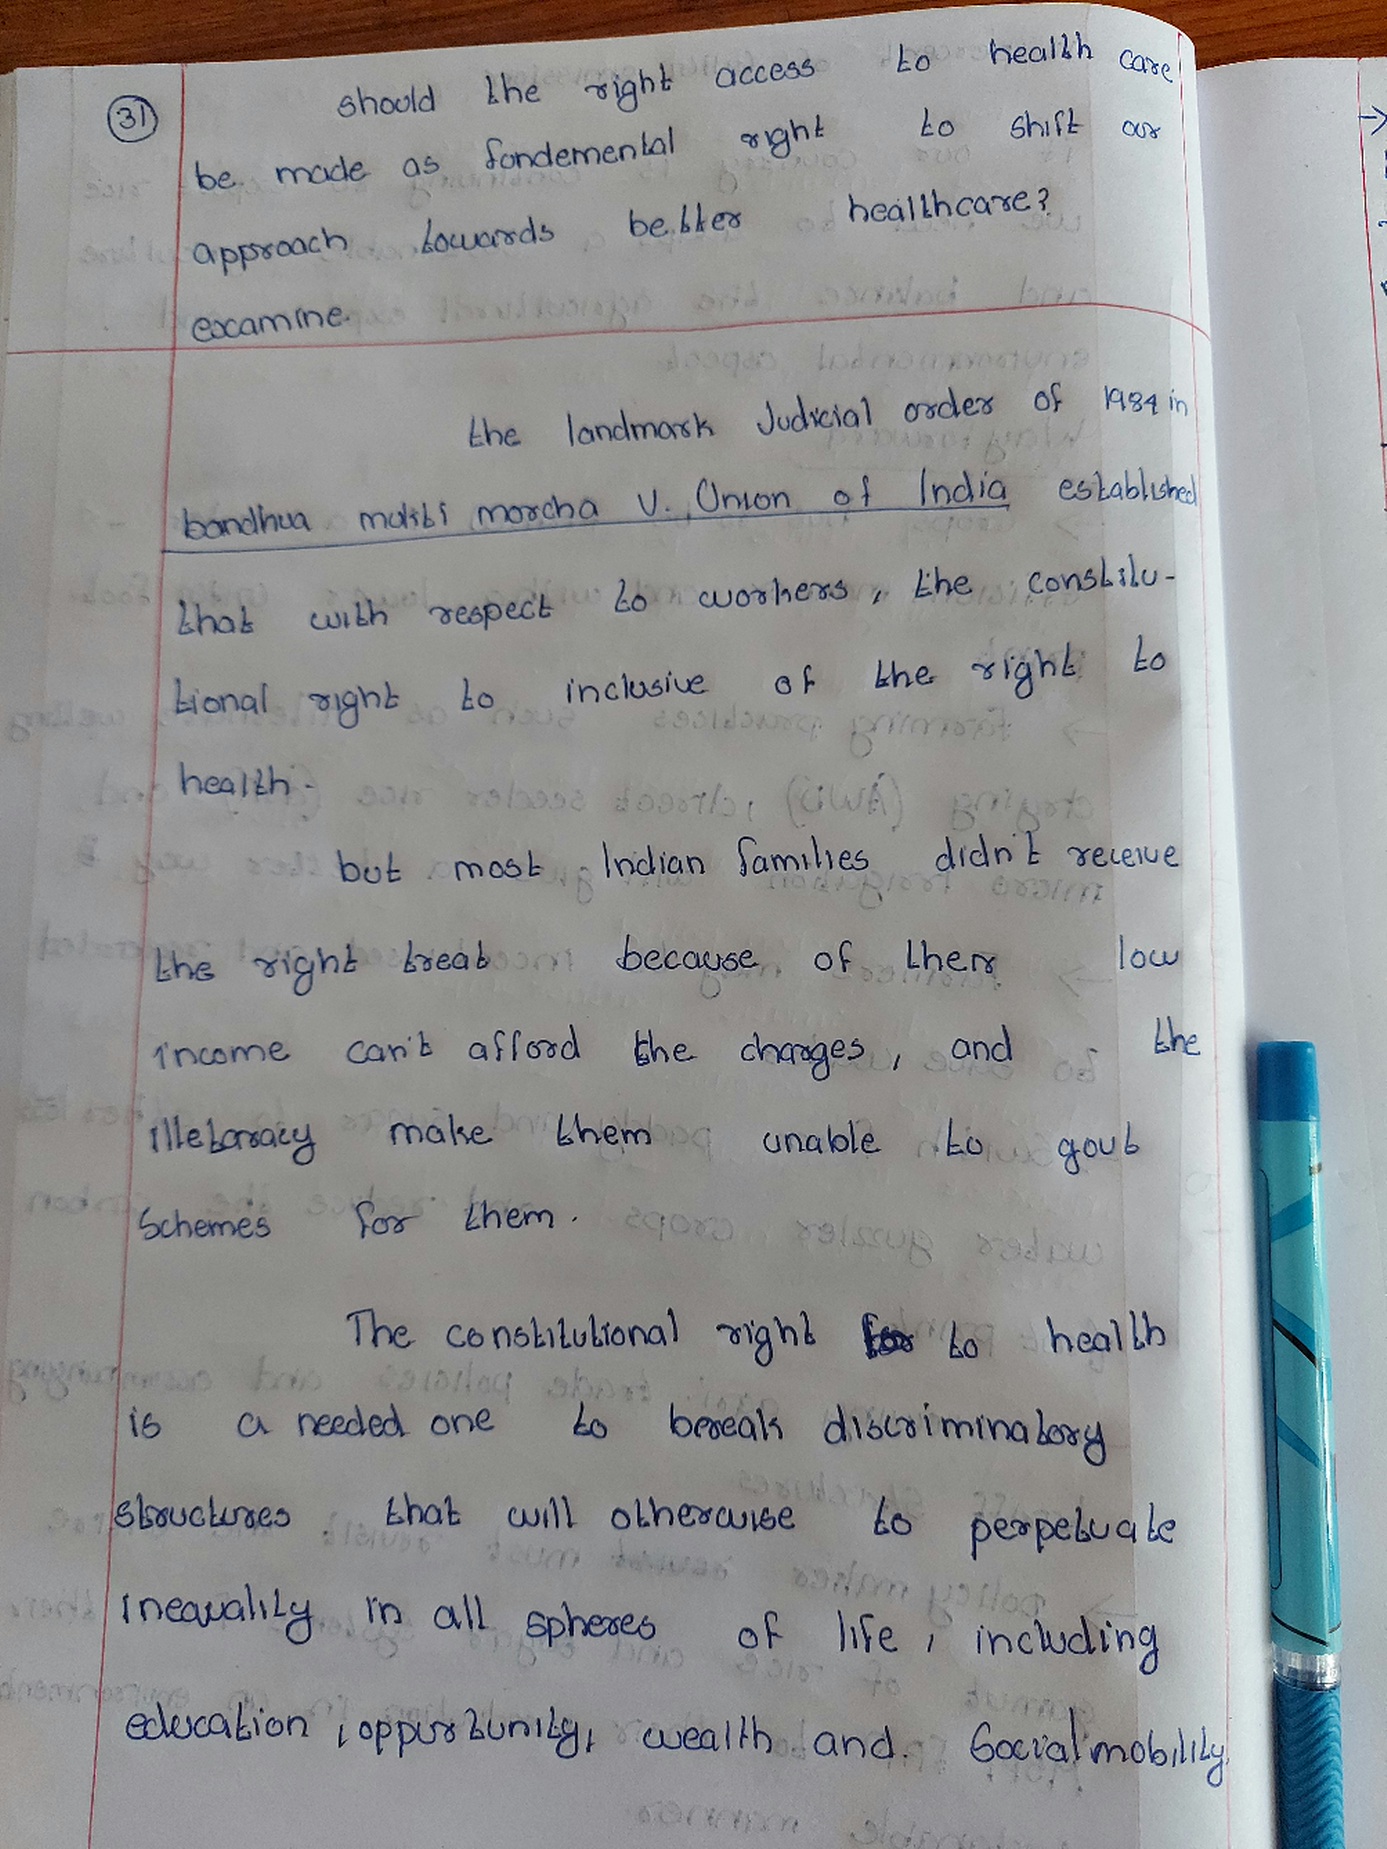 31
should the right access to health care
be made as fondemental right to shift our
approach towards better healthcare?
examine.
the landmark Judicial order of 1984 in
bandhua mukti morcha V. Union of India established
that with respect to workers, the constitu-
tional right to inclusive of the right to
health.
but most Indian families didn't receive
the right treat because of their low
income can't afford the charges, and the
illetaracy make them unable to govt
schemes for them.
The constitutional right to health
is a needed one to bereak discriminatory
structures that will otherwise to perpetuate
inequality in all spheres of life, including
education, oppurtunity, wealth and. Social mobility